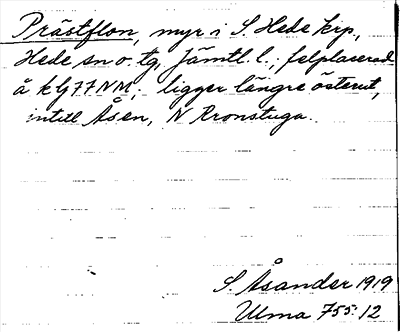 Prästflon, myr i S. Hede krp,
Hede sn o. tg, Jämtl. l.; felplacerad
å kbj 77 NM; ligger längre österut,
intill Åsen, N Kronstuga.
S. Åsander 1919
Ulma 755:12